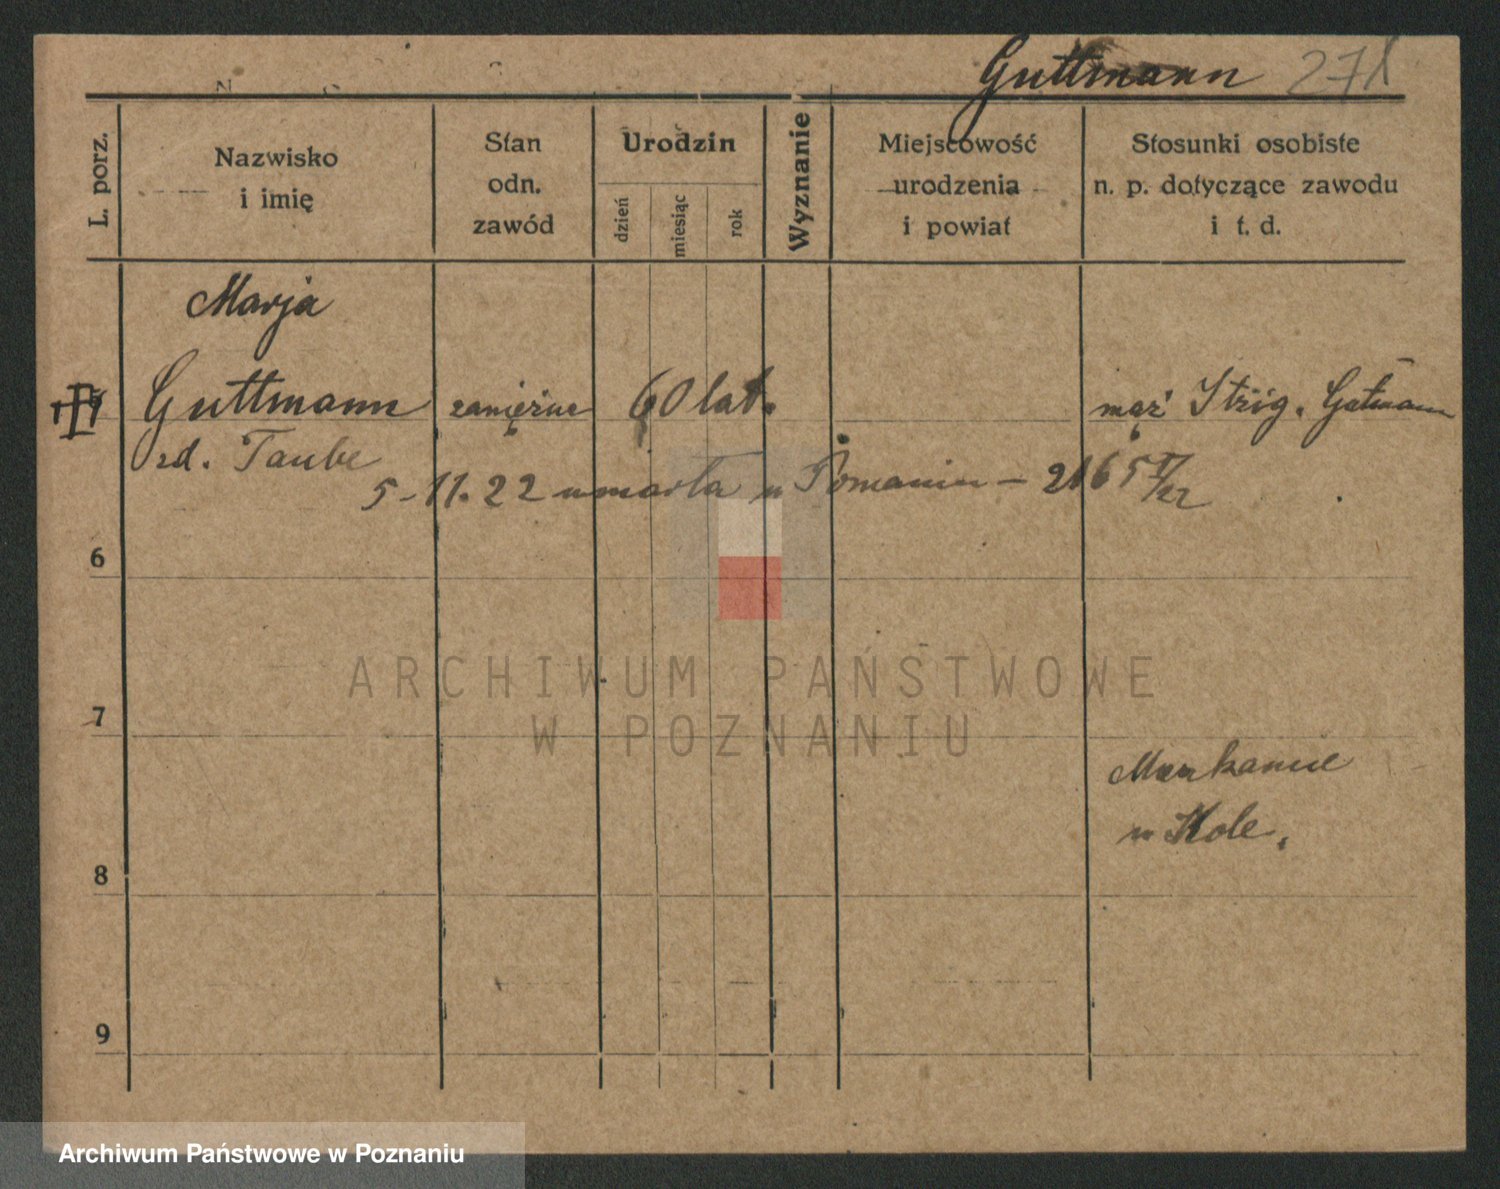 Guttmann 271
L. porz.
Nazwisko
i imię
Stan
odn.
zawód
Urodzin
dzień
miesiąc
rok
Wyznanie
Miejscowość
urodzenia
i powiat
Stosunki osobiste
n. p. dotyczące zawodu
i t. d.
Marja
Guttmann zamężna 60 lat. mąż Gutmann
zd. Taube
5-11.22 umarła w Poznaniu
6
7
8
9
w Kole.
ARCHIWUM PAŃSTWOWE
W POZNANIU
Archiwum Państwowe w Poznaniu